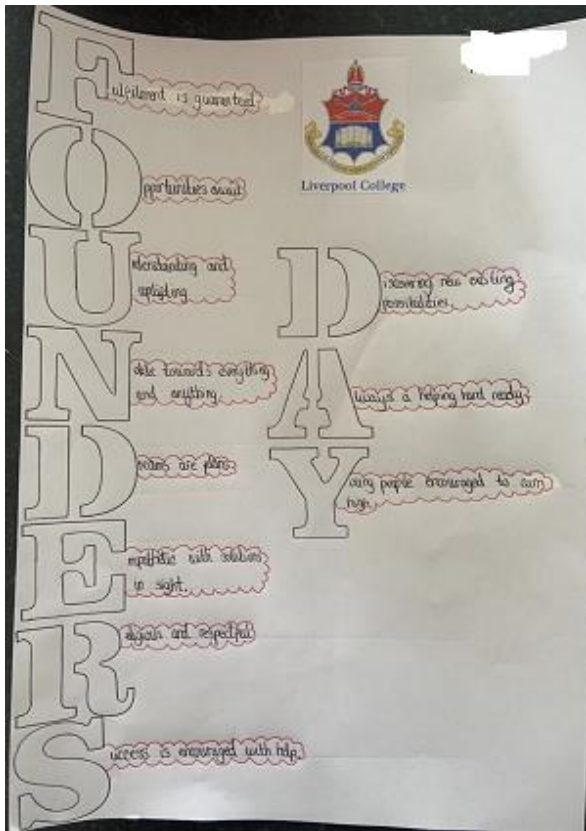 Fulfilment is guaranteed
Opportunities await
Understanding and
uplifting
Noble towards everything
and anything.
Dreams are plans
Empathetic with solutions
in sight.
Religious and respectful
Success is encouraged with help.
Liverpool College
Discovering new exciting
possibilities.
Always a helping hand ready
Young people encouraged to aim
high.